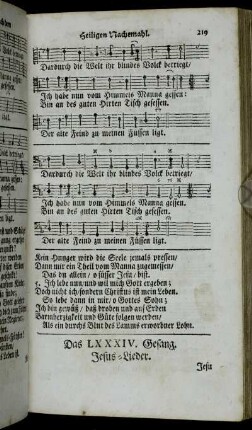 Heiligen Nachtmahl. 219
Dardurch die Welt ihr blindes Volck betriegt/
Ich habe nun vom Himmels Manna gessen:
Bin an des guten Hirten Tisch gesessen.
Der alte Feind zu meinen Füssen ligt.
Dardurch die Welt ihr blindes Volck betriegt/
Ich habe nun vom Himmels Manna gessen.
Bin an des guten Hirten Tisch gesessen.
Der alte Feind zu meinen Füssen ligt.
Kein Hunger wird die Seele jemals pressen/
Dann mir ein Theil vom Manna zugemessen/
Das du allein/ o süsser Jesu/ bist.
Ich lebe nun/und will mich Gott ergeben;
Doch nicht ich/sondern Christus ist mein Leben.
So lebe dann in mir/ o Gottes Sohn;
Ich bin gewiß/ daß droben und auf Erden
Barmherzigkeit und Güte folgen werden/
Als ein durchs Blut des Lamms erworbner Lohn.
Das LXXXIV. Gesang.
Jesus-Lieder.
Jesu